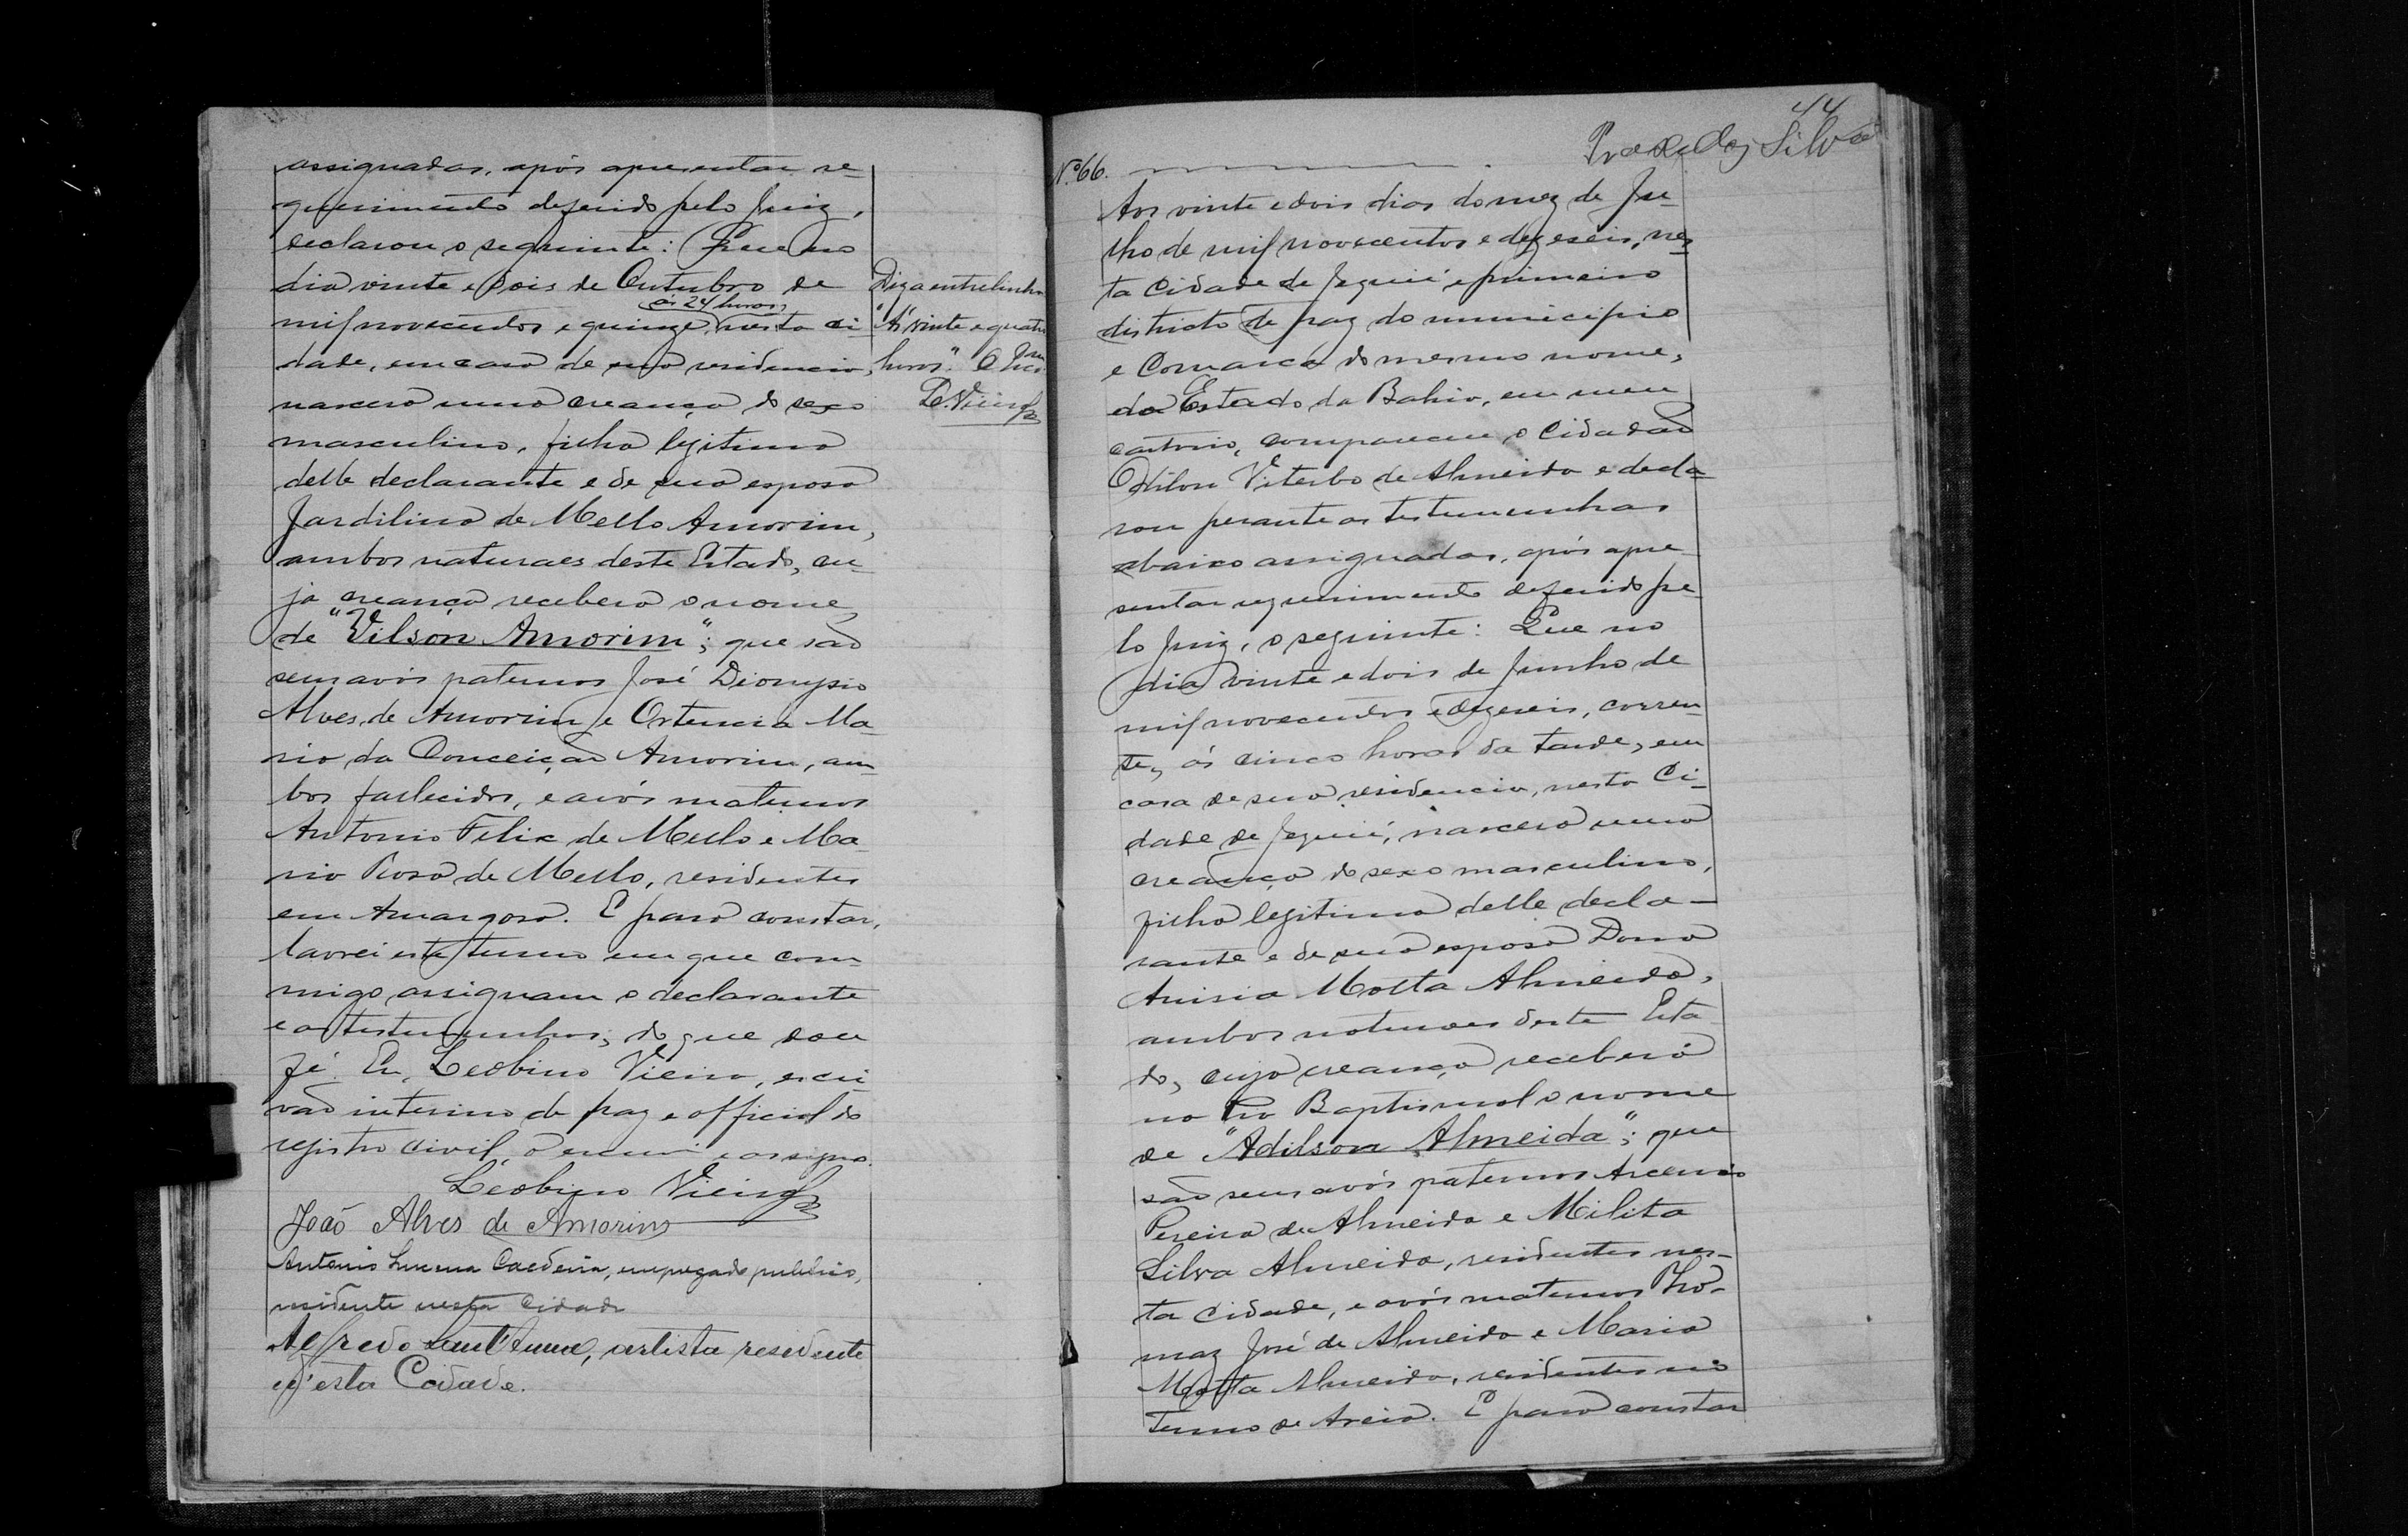 assignadas, após apresentar re-
querimento deferido pelo Juiz,
declarou o seguinte: Que no
dia vinte e dois de Outubro de
ás 24 horas,
mil novecentos e quinze, nesta ci-
dade, em casa de sua residencia,
nascera uma creança do sexo
masculino, filha legitima
delle declarante e de sua esposa
Jardilina de Mello Amorim,
ambos naturaes deste Estado, cu-
ja creança receberá o nome
de "Vilson Amorim"; que são
seus avós paternos José Dionysio
Alves de Amorim e Ortencia Ma-
ria da Conceição Amorim, am-
bos fallecidos, e avós maternos
Antonio Felix de Mello e Ma-
ria Rosa de Mello, residentes
em Amargosa. E para constar,
lavrei este termo em que com-
migo assignam o declarante
e as testemunhas; do que dou
fé. Eu, Leobino Vieira, escri-
vão interino de paz e official do
registro civil, o escrevi e assigno.
Leobino Vieira
João Alves de Amorim
Antonio Lucena Caldeira, empregado publico,
residente nesta Cidade
Alfredo Sant'Anna, artista residente
n'esta Cidade.
Diga entrelinha
"Ás vinte e quatro
horas". O
L. Vieira
44
Praxedes Silva
Nº 66.
Aos vinte e dois dias do mez de Ju-
lho de mil novecentos e dezeseis, nes-
ta Cidade de Jequié e primeiro
districto de paz do municipio
e Comarca do mesmo nome,
do Estado da Bahia, em meu
cartorio, compareceu o Cidadão
Odilon Viterbo de Almeida e decla-
rou perante as testemunhas
abaixo assignadas, após apre-
sentar requerimento deferido pe-
lo Juiz, o seguinte: Que no
dia vinte e dois de Junho de
mil novecentos e dezeseis, corren-
te, ás cinco horas da tarde, em
casa de sua residencia, nesta Ci-
dade de Jequié, nascera uma
creança do sexo masculino,
filha legitima delle decla-
rante e de sua esposa Dona
Anisia Motta Almeida,
ambos naturaes deste Esta-
do, cuja creança receberá
na Pia Baptismal o nome
de "Adilson Almeida"; que
são seus avós paternos Arcenio
Pereira de Almeida e Milita
Silva Almeida, residentes nes-
ta cidade, e avós maternos Tho-
maz José de Almeida e Maria
Motta Almeida, residentes no
Termo de Areia. E para constar